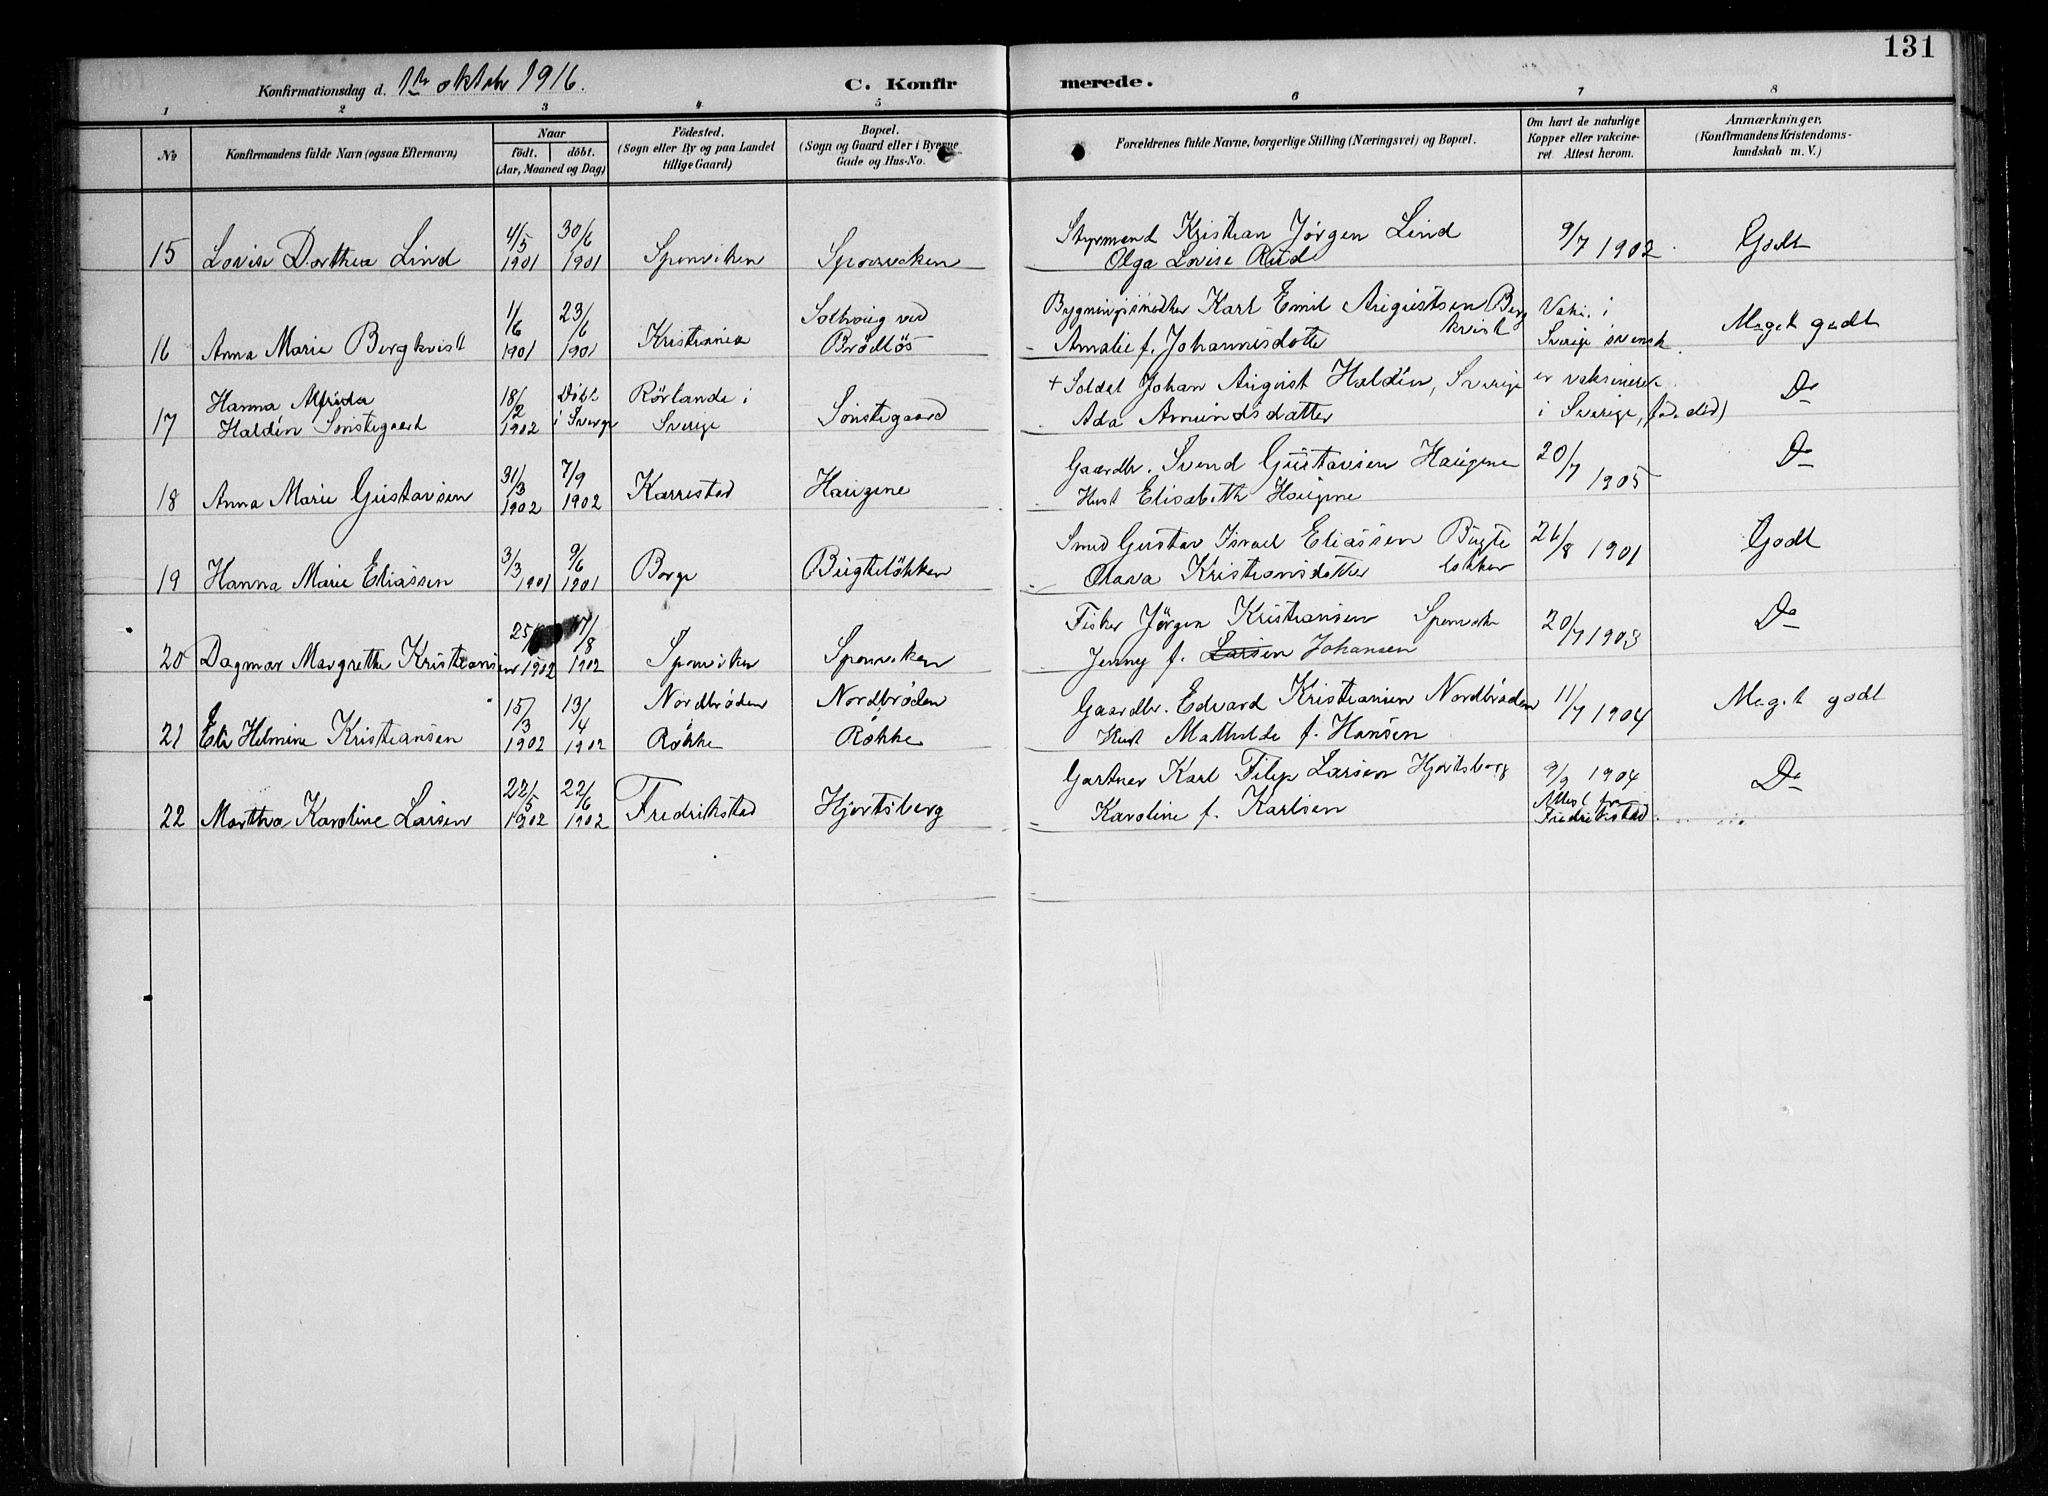 131
Konfirmationsdag d. 1ste oktober 1916. C. Konfirmerede.
1 2 3 4 5 6 7 8
No
Konfirmandens fulde Navn (ogsaa Efternavn)
Naar
födt. döbt.
(Aar, Maaned og Dag)
Födested.
(Sogn eller By og paa Landet
tillige Gaard)
Bopæl.
(Sogn og Gaard eller i Byerne
Gade og Hus-No.
Forældrenes fulde Navne, borgerlige Stilling (Næringsvei) og Bopæl.
Om havt de naturlige
Kopper eller vakcine-
ret. Attest herom.
Anmærkninger.
(Konfirmandens Kristendoms-
kundskab m. V.)
15 Lovise Dorthea Lind 4/5 1901 30/6 1901 Sponviken Sponviken
Styrmand Kristian Jörgen Lind
Olga Lovise Rud
9/7 1902 Godt
16 Anna Marie Bergkvist 1/6 1901 23/6 1901 Kristiania Solhoug ved
Brödlös
Bygningssnedker Karl Emil Augustsen Berg
kvist
Amalie f. Johannisdotter
Vaks. i
Sverige svensk
Meget godt
17 Hanna Alfrida
Haldén Sönstegaard
18/2 1902 Döbt
i Sverge
Rörlanda i
Sverige
Sönstegaard
+ Soldat Johan August Haldén, Sverige
Ada Amundsdatter
er vaksineret
i Sverige, (fad. död)
Do
18 Anna Marie Gustavsen 31/3 1902 7/9 1902 Karrestad Haugene
Gaardbr. Svend Gustavsen Haugene
Hust Elisabeth Haugene
20/7 1905 Do
19 Hanna Marie Eliassen 3/3 1901 9/6 1901 Borge Bugtelökken
Smed Gustav Israel Eliassen Bugte
lökken
Olava Kristiansdatter
26/8 1901 Godt
20 Dagmar Margrethe Kristiansen 25/ 1902 17/8 1902 Sponviken Sponviken
Fisker Jörgen Kristiansen Sponviken
Jenny f. Larsen Johansen
20/7 1903 Do
21 Eli Helmine Kristiansen 15/3 1902 13/4 1902 Nordbröden
Rökke
Nordbröden
Rökke
Gaardbr. Edvard Kristiansen Nordbröden
Hust Mathilde f. Hansen
11/7 1904 Meget godt
22 Martha Karoline Larsen 22/5 1902 22/6 1902 Fredrikstad Hjortsberg
Gartner Karl Filip Larsen Hjortsberg
Karoline f. Karlsen
9/9 1904
Attest fra
Fredrikstad
Do